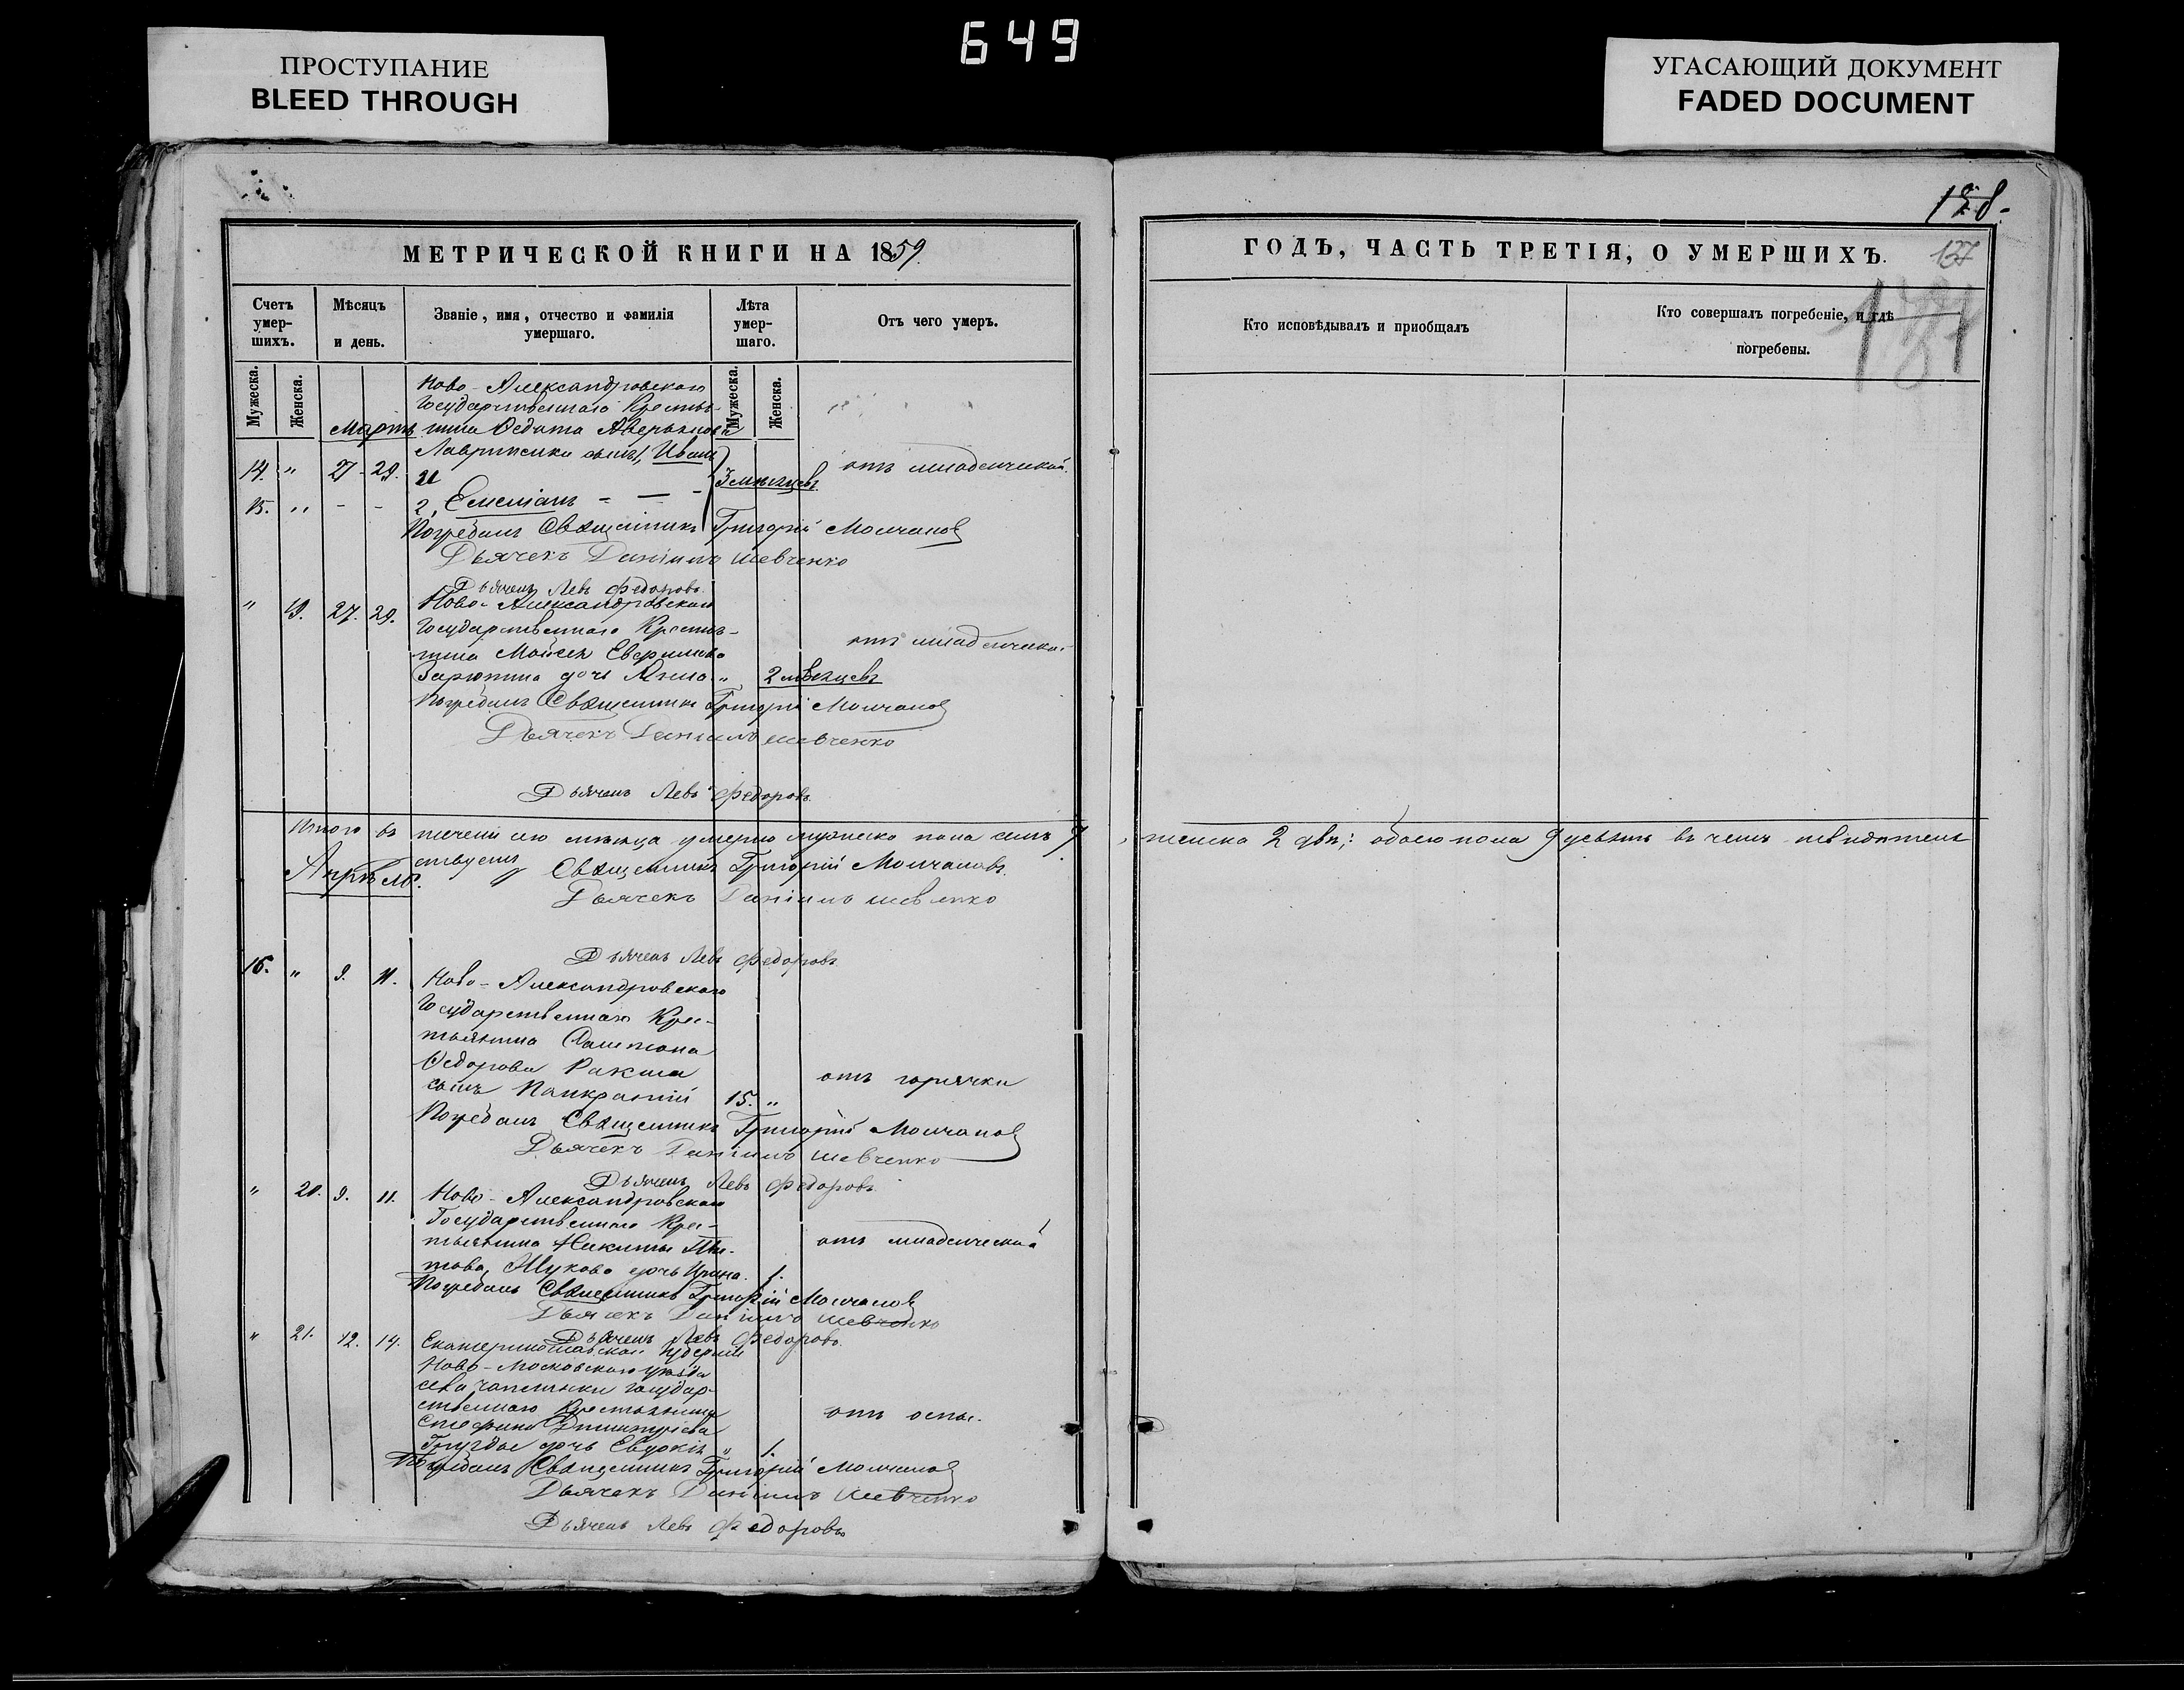 649
ПРОСТУПАНИЕ
BLEED THROUGH
УГАСАЮЩИЙ ДОКУМЕНТ
FADED DOCUMENT
МЕТРИЧЕСКОЙ КНИГИ НА 1859.
Счетъ умер-шихъ.
Мѣсяцъ и день.
Званіе, имя, отчество и фамилія умершаго.
Лѣта умер-шаго.
Отъ чего умеръ.
Мужеска.
Женска.
Мужеска.
Женска.
Ново-Александровскаго
Государственнаго Крестья-
Мартъ нина Федота Аверьянова
Лавриненки сынъ 1, Иванъ
14. " 27-29. и 3 мѣсяцевъ. отъ младенческой.
15. " - - 2, Емеліанъ - — -
Погребалъ Священникъ Григорій Молчановъ
Дьячекъ Даніилъ Шевченко
Дьячекъ Левъ Федоровъ.
" 19. 27. 29. Ново-Александровскаго
Государственнаго Крестья-
нина Моисея отъ младенческой
дочь Анна " 2 мѣсяцевъ
Погребалъ Священникъ Григорій Молчановъ
Дьячекъ Даніилъ Шевченко
Дьячекъ Левъ Федоровъ.
Итого въ теченіи сего мѣсяца умерло мужеска пола семь 7, женска 2 двѣ; обоего пола 9 девять въ чемъ свидѣтель
ствуемъ Священникъ Григорій Молчановъ.
Апрѣль.
Дьячекъ Даніилъ Шевченко
Дьячекъ Левъ Федоровъ
16. " 9. 11. Ново-Александровскаго
Государственнаго Крес-
тьянина
Федорова Ракши отъ горячки
сынъ Панкратій 15. "
Погребалъ Священникъ Григорій Молчановъ
Дьячекъ Даніилъ Шевченко
Дьячекъ Левъ Федоровъ.
" 20. 9. 11. Ново-Александровскаго
Государственнаго Крес-
тьянина Никиты Ти- отъ младенческой
това, Жукова дочь Ирина. 1.
Погребалъ Священникъ Григорій Молчановъ
Дьячекъ Даніилъ Шевченко
Дьячекъ Левъ Федоровъ.
" 21. 12. 14. Екатеринославской Губерніи
Ново-Московскаго уѣзда
села государ-
ственнаго Крестьянина отъ оспы.
Стефана Димитріева
дочь Евдокія " 1.
Погребалъ Священникъ Григорій Молчановъ
Дьячекъ Даніилъ Шевченко
Дьячекъ Левъ Федоровъ
128.
ГОДЪ, ЧАСТЬ ТРЕТІЯ, О УМЕРШИХЪ.
137
Кто исповѣдывалъ и пріобщалъ
Кто совершалъ погребеніе, и гдѣ погребены.